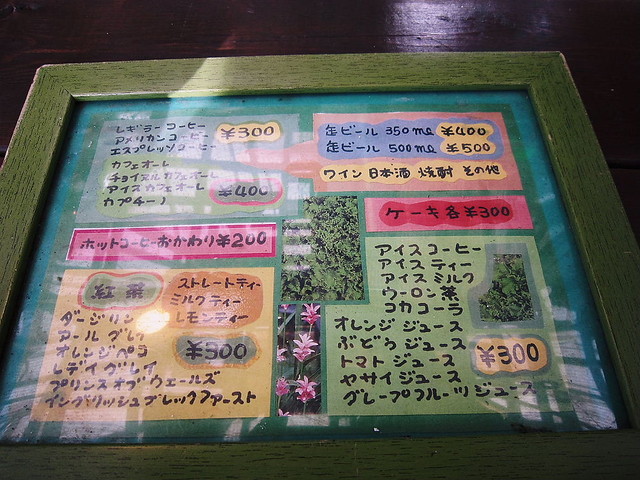 レギラーコーヒー
アメリカンコーヒー
エスプレッソコーヒー
¥300
カフェオーレ
チョイスルカフェオーレ
アイスカフェオーレ
カプチーノ
¥400
ホットコーヒーおかわり¥200
紅茶
ストレートティー
ミルクティー
レモンティー
ダージリン
アールグレイ
オレンジペコ
レディグレイ
プリンスオブウェールズ
イングリッシュブレックファースト
¥300
缶ビール 350ml ¥400
缶ビール 500ml ¥500
ワイン 日本酒 焼酎 その他
ケーキ各¥300
アイスコーヒー
アイスティー
アイスミルク
ウーロン茶
コカコーラ
オレンジジュース
ぶどうジュース
トマトジュース
ヤサイジュース
グレープフルーツジュース
¥300